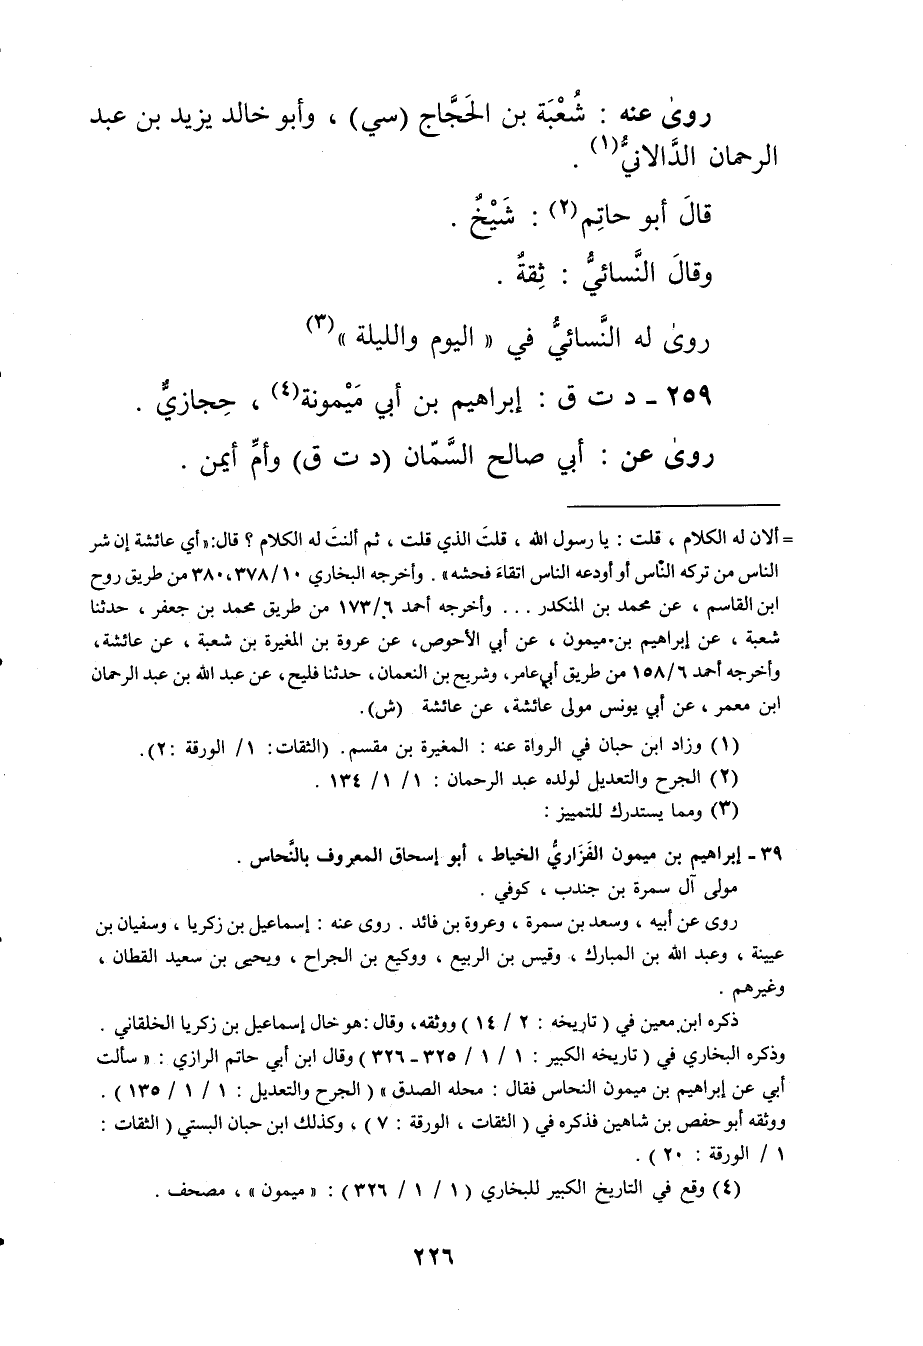 روىٰ عنه : شُعْبَة بن الحَجَّاج (سي) ، وأبو خالد يزيد بن عبد
الرحمان الدَّالانيُّ(١) .
قالَ أبو حاتِم(٢) : شَيْخٌ .
وقالَ النَّسائيُّ : ثِقةٌ .
روىٰ له النَّسائيُّ في « اليوم والليلة »(٣)
٢٥٩ ـ د ت ق : إبراهيم بن أبي مَيْمونة(٤) ، حِجازيٌّ .
روىٰ عن : أبي صالح السَّمّان (د ت ق) وأمِّ أيمن .
= ألان له الكلام ، قلت : يا رسول الله ، قلتَ الذي قلت ، ثم ألنتَ له الكلام ؟ قال: «أي عائشة إن شر
الناس من تركه النّاس أو أودعه الناس اتقاءَ فحشه» . وأخرجه البخاري ١٠/ ٣٧٨، ٣٨٠ من طريق روح
ابن القاسم ، عن محمد بن المنكدر . . . وأخرجه أحمد ٦/ ١٧٣ من طريق محمد بن جعفر ، حدثنا
شعبة ، عن إبراهيم بن ميمون ، عن أبي الأحوص، عن عروة بن المغيرة بن شعبة ، عن عائشة،
وأخرجه أحمد ٦/ ١٥٨ من طريق أبي عامر، وشريح بن النعمان، حدثنا فليح، عن عبد الله بن عبد الرحمان
ابن معمر ، عن أبي يونس مولى عائشة، عن عائشة (ش).
(١) وزاد ابن حبان في الرواة عنه : المغيرة بن مقسم. (الثقات: ١/ الورقة :٢).
(٢) الجرح والتعديل لولده عبد الرحمان : ١/ ١/ ١٣٤ .
(٣) ومما يستدرك للتمييز :
٣٩ ـ إبراهيم بن ميمون الفَزَاريُّ الخياط ، أبو إسحاق المعروف بالنَّحاس .
مولى آل سمرة بن جندب ، كوفي .
روى عن أبيه ، وسعد بن سمرة ، وعروة بن فائد . روى عنه : إسماعيل بن زكريا ، وسفيان بن
عيينة ، وعبد الله بن المبارك ، وقيس بن الربيع ، ووكيع بن الجراح ، ويحيى بن سعيد القطان ،
وغيرهم .
ذكره ابن معين في ( تاريخه : ٢ / ١٤ ) ووثقه، وقال :هو خال إسماعيل بن زكريا الخلقاني .
وذكره البخاري في ( تاريخه الكبير : ١ / ١ / ٣٢٥ ـ ٣٢٦ ) وقال ابن أبي حاتم الرازي : « سألت
أبي عن إبراهيم بن ميمون النحاس فقال : محله الصدق » ( الجرح والتعديل : ١ / ١ / ١٣٥ ) .
ووثقه أبو حفص بن شاهين فذكره في ( الثقات ، الورقة : ٧ ) ، وكذلك ابن حبان البستي ( الثقات :
١ / الورقة : ٢٠ ) .
(٤) وقع في التاريخ الكبير للبخاري ( ١ / ١ / ٣٢٦ ) : « ميمون » ، مصحف .
٢٢٦